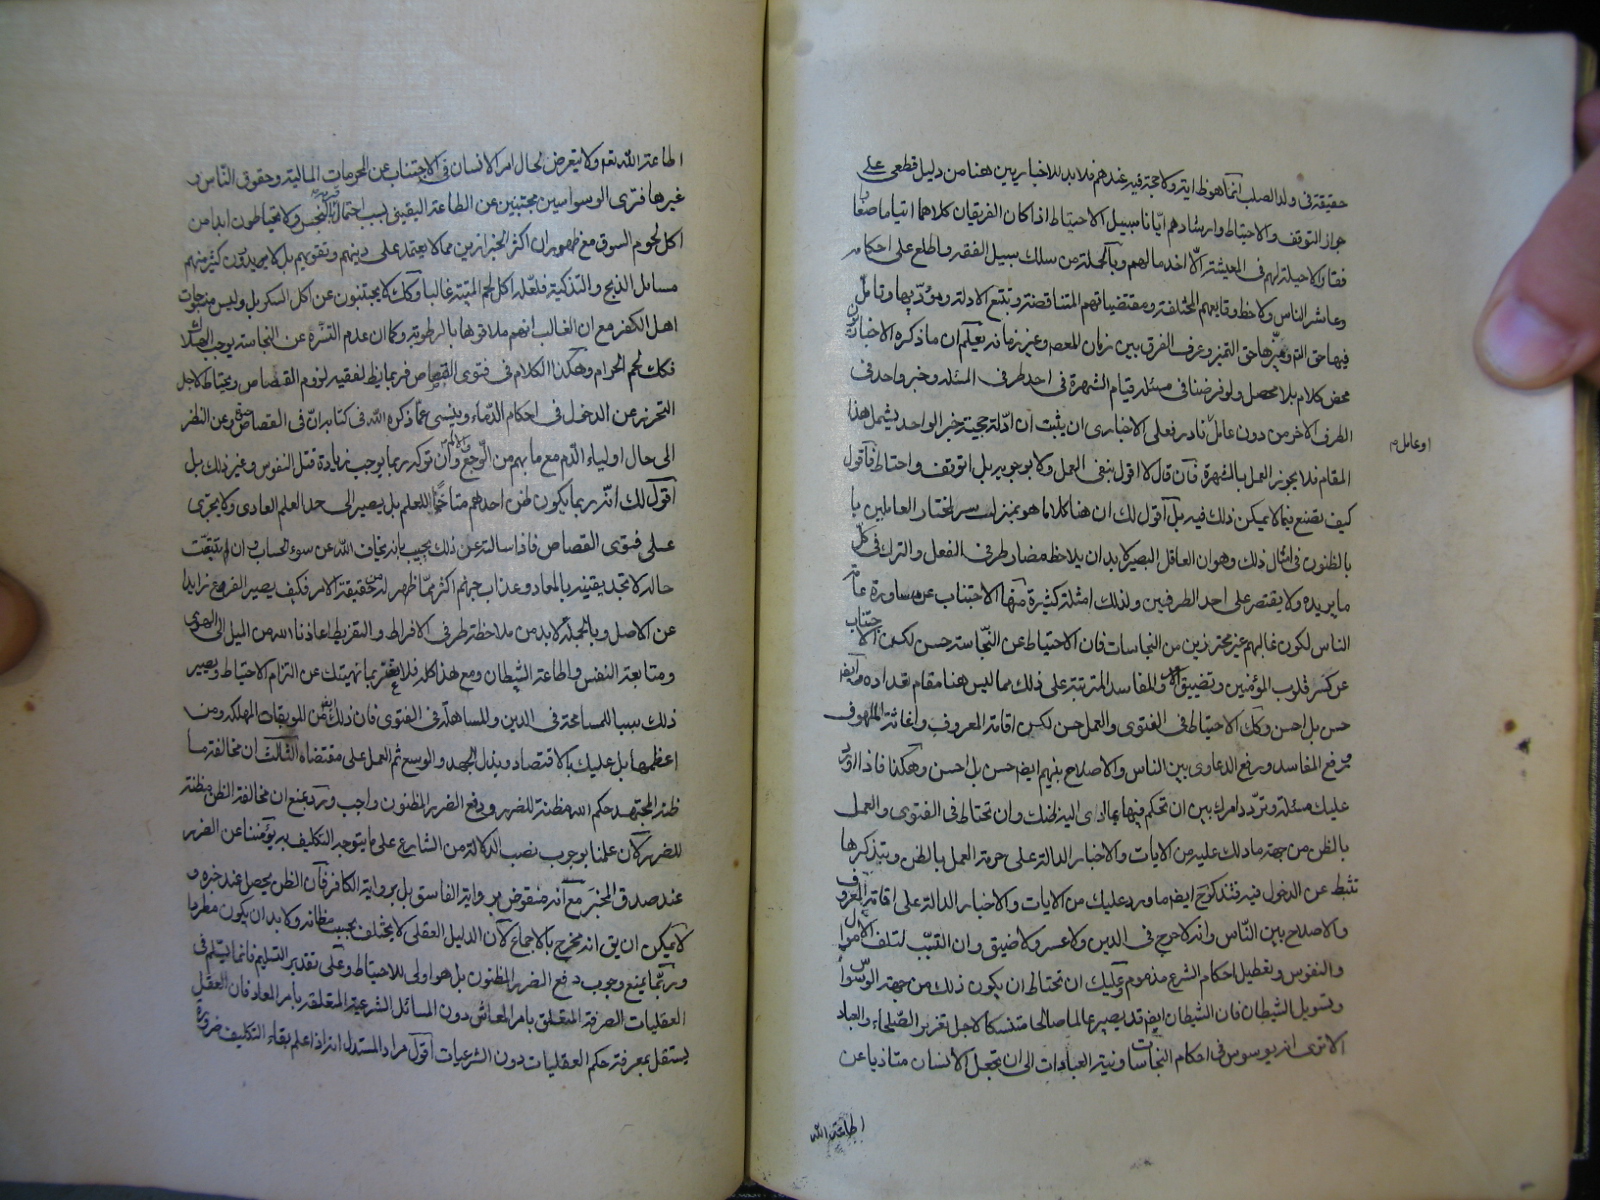 حقيقة في ولد الصلب انما هو ظاية ولا حجة فيه عندهم فلا بد للاخباريين هنا من دليل قطعي على
جواز التوقف والاحتياط وارشادهم ايانا سبيل الاحتياط اذا كان الفريقان كلاهما
فقراء لا حيلة لهم في المعيشة الا اخذ مالهم وبالجملة من سلك سبيل الفقه واطلع على احكامه
وعاشر الناس ولاحظ وقايعهم المختلفة ومقتضياتهم المتناقضة وتتبع الادلة ومؤديها وتامل
فيها حق التامل وميزها حق التميز وعرف الفرق بين زمان المعصوم وغير زمانه يعلم ان ما ذكره الاخباريون
محض كلام بلا محصل ولو فرضنا في مسئلة قيام الشهرة في احد طرفي المسئلة وخبر واحد في
الطرف الاخر من دون عامل او عامل نادر فعلى الاخباري ان يثبت ان ادلة حجية خبر الواحد يشمل هذا
المقام فلا يجوز العمل بالشهرة فان قال لا اقول بنفي العمل ولا بوجوبه بل اتوقف واحتاط فاقول
كيف تصنع فيما لا يمكن ذلك فيه بل اقول لك ان هنا كلاما هو بمنزلة سر لمختار العاملين با
بالظنون في امثال ذلك وهو ان العاقل البصير لا بد ان يلاحظ مضار طرفي الفعل والترك في كل
ما يريده ولا يقتصر على احد الطرفين ولذلك امثلة كثيرة منها الاجتناب عن مساورة عامة
الناس لكون غالبهم غير محترزين من النجاسات فان الاحتياط عن النجاسة حسن لكن الاجتناب
عن كسر قلوب المؤمنين وتضييق الامر والمفاسد المترتبة على ذلك مما ليس هنا مقام تعداده ايضا
حسن بل احسن وكك الاحتياط في الفتوى والعمل حسن لكن اقامة المعروف واغاثة الملهوف
ورفع المفاسد ورفع الدعاوي بين الناس والاصلاح بينهم ايضا حسن بل احسن وهكذا فاذا اورد
عليك مسئلة وتردد امرك بين ان تحكم فيها بما ادى اليه ظنك وان تحتاط في الفتوى والعمل
بالظن من جهة ما دلك عليه من الايات والاخبار الدالة على حرمة العمل بالظن وبتذكرها
تثبط عن الدخول فيه فتذكر ح ايضا ما ورد عليك من الايات والاخبار الدالة على اقامة المعروف
والاصلاح بين الناس وانه لا حرج في الدين ولا عسر ولا ضيق وان السبب لتلف الاموال
والنفوس وتعطيل احكام الشرع مذموم وعليك ان تحتاط ان يكون ذلك من جهة الوسواس
وتسويل الشيطان فان الشيطان ايضا قد يصير عالما صالحا متنسكا لاجل تغرير الصلحاء والعباد
الا ترى انه يوسوس في احكام النجاسات ونية العبادات الى ان يجعل الانسان متاذيا عن
اطاعة الله
او عامل صح
اطاعة الله تعم ولا يتعرض لحال امر الانسان في الاجتناب عن المحرمات المالية وحقوق الناس و
غيرها فترى الوسواسين مجتنبين عن الطاعة اليقيني بسبب احتمال النجس ولا يحتاطون ابدا من
اكل لحوم السوق مع ظهور ان اكثر الخبازين مما لا يعتمد على دينهم وتقويهم بل لا يدرون كثير منهم
مسائل الذبح والتذكية فلعله اكل لحم الميتة غالبا وكك لا يجتنبون عن اكل السكر بل وليس منسوجات
اهل الكفر مع ان الغالب انهم ملاقوها بالرطوبة وكما ان عدم التنزه عن النجاسة يوجب الهلاك
فكك لحم الحرام وهكذا الكلام في فتوى القصاص فربما يظ لفقيه لزوم القصاص ويحتاط لاجل
التحرز عن الدخول في احكام الدماء وينسى عما ذكره الله في كتابه ان في القصاص وعن النظر
الى حال اولياء الدم مع ما بهم من الوجع والالم وان تركه ربما يوجب زيادة قتل النفوس وغير ذلك بل
اقول لك انه ربما يكون ظن احدهم متاخما للعلم بل يصير الى حد العلم العادي ولا يجترى
على فتوى القصاص فاذا سالته عن ذلك يجيب بانه يخاف الله عن سوء الحساب وان تتبعت
حاله لا تجد يقينه بالمعاد وعذاب جهنم اكثر مما ظهر له من حقيقة الامر فكيف يصير الفرع زايدا
عن الاصل وبالجملة لا بد من ملاحظة طرفي الافراط والتفريط اعاذنا الله من الميل الى الهوى
ومتابعة النفس واطاعة الشيطان ومع هذا كله فلا تغتر بما نهيتك عن التزام الاحتياط ويصير
ذلك سببا للمسامحة في الدين والمساهلة في الفتوى فان ذلك ايضا من الموبقات المهلكة ومن
اعظمها بل عليك بالاقتصاد وبذل الجهد والوسع ثم العمل على مقتضاه الثالث ان مخالفة ما
ظنه المجتهد حكم الله مظنة للضرر ودفع الضرر المظنون واجب ورد بمنع ان مخالفة الظن مظنة
للضرر لان علمنا بوجوب نصب الدلالة من الشارع على ما يتوجه التكليف به يؤمننا عن الضرر
عند صدق المخبر مع انه منقوض برواية الفاسق بل برواية الكافر فان الظن يحصل عند خبره و
لا يمكن ان يق انه مخرج بالاجماع لان الدليل العقلي لا يختلف بحسب مظانه ولا بد ان يكون مطردا
وربما يمنع وجوب دفع الضرر المظنون بل هو اولى للاحتياط وعلى تقدير التسليم فانما يسلم في
العقليات الصرفة المتعلق بامر المعاش دون المسائل الشرعية المتعلقة بامر المعاد فان العقل
يستقل بمعرفة حكم العقليات دون الشرعيات اقول مراد المستدل انه اذا علم بقاء التكليف ضرورة